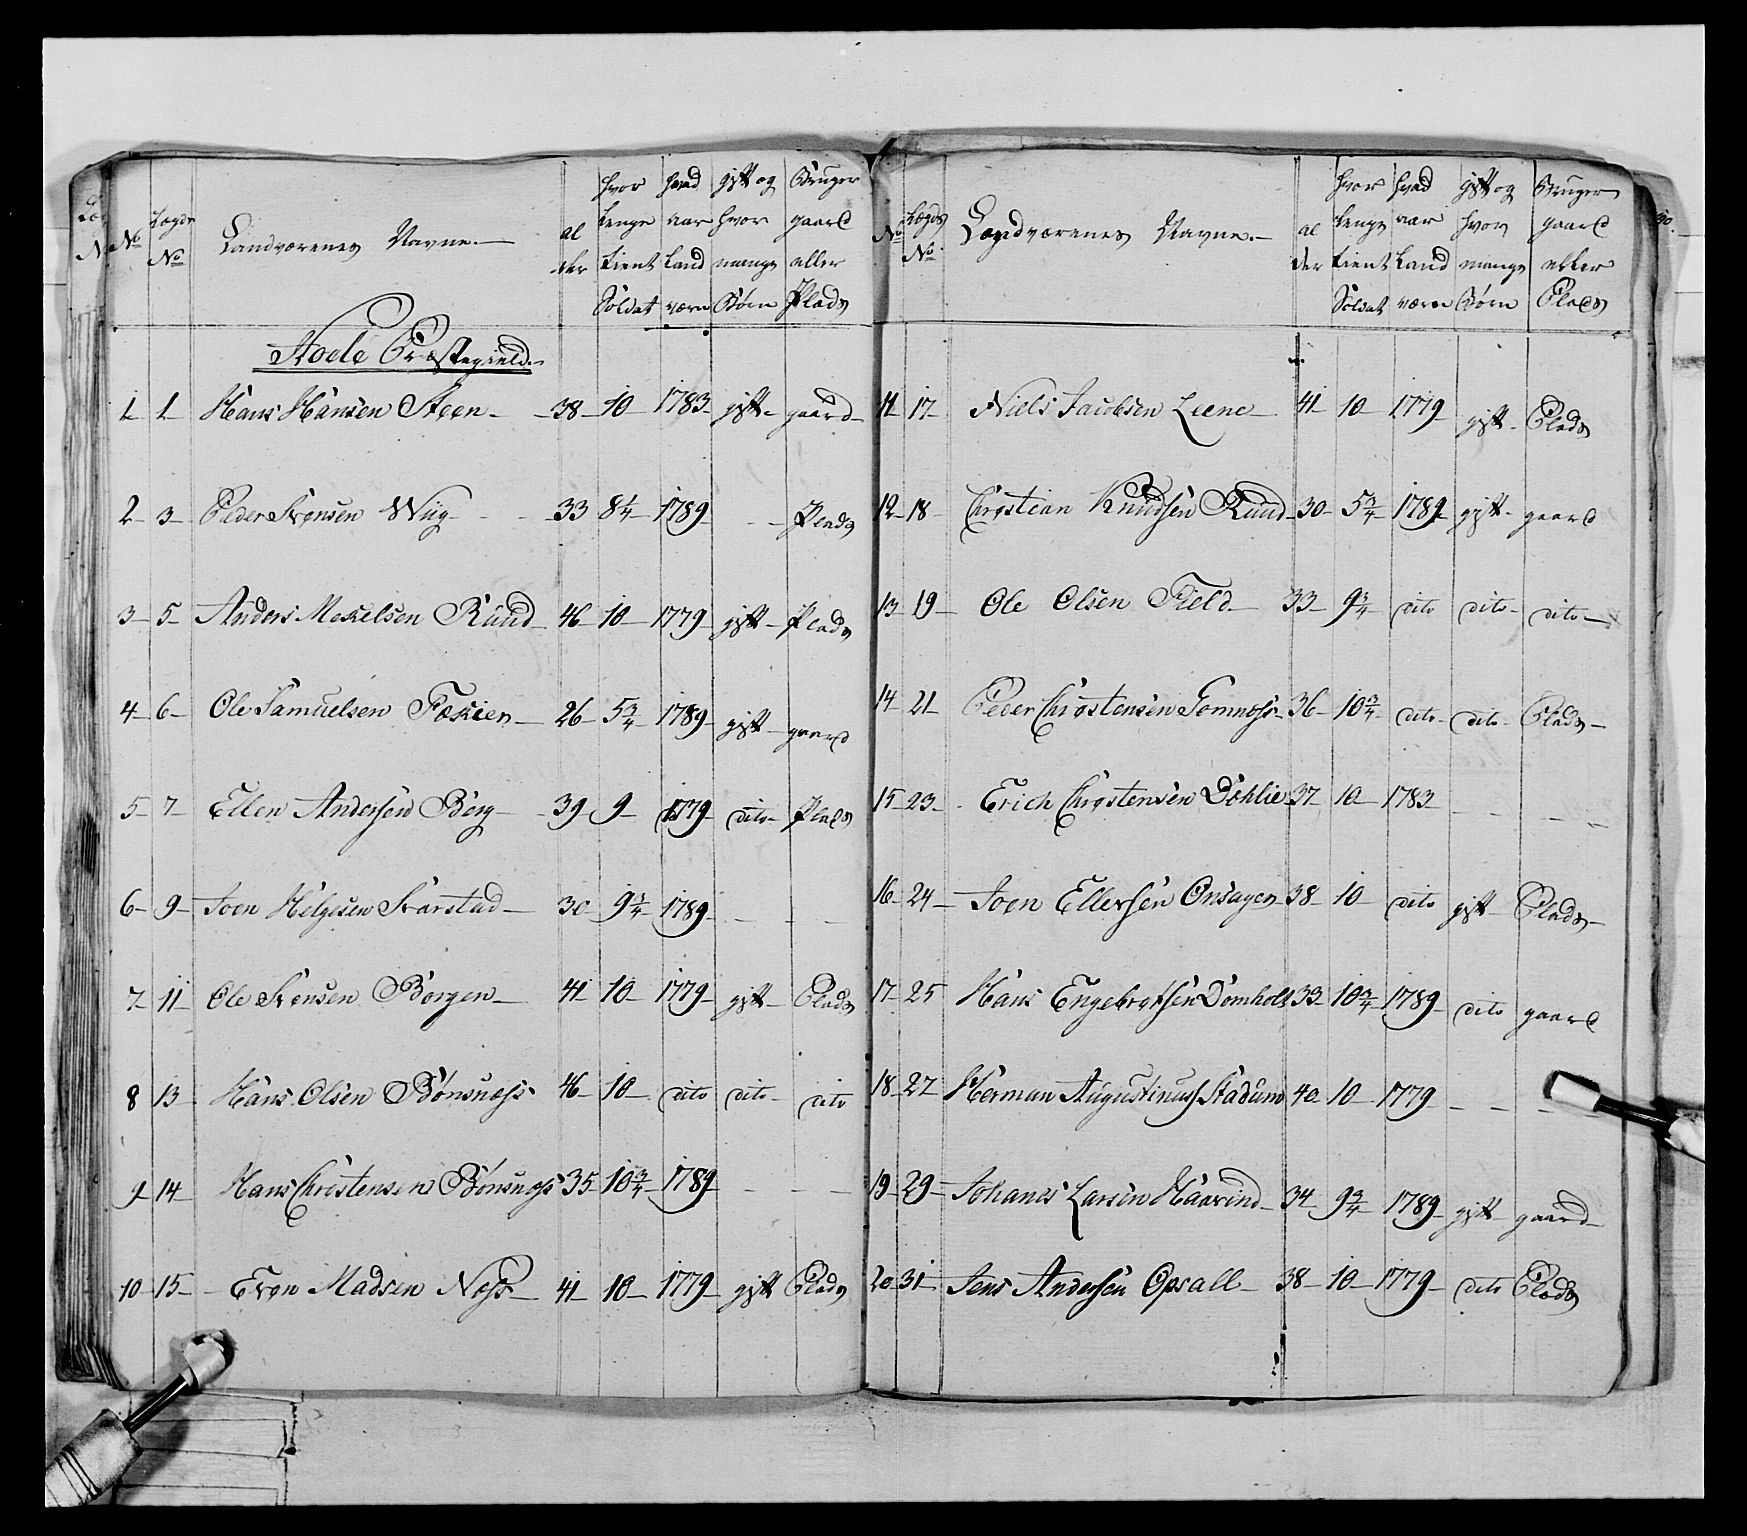 No Lægds No Landværenes Navne. al der hvor lenge tient Soldat hvad aar Land værn gift og hvor mange Børn Bruger gaard eller Plads
Hoele Præstegield.
1 1 Hans Hansen Steen 38 10 1783 gift gaard
2 3 Peder Svensen Wiig 33 8¼ 1789 - Plads
3 5 Anders Mekelsen Ruud 46 10 1779 gift Plads
4 6 Ole Samuelsen Fœkier 26 5¾ 1789 gift gaard
5 7 Ellen Andersen Berg 39 9 1779 dito Plads
6 9 Joen Helgesen Svarstad 30 9¾ 1789 - -
7 11 Ole Svensen Borgen 41 10 1779 gift Plads
8 13 Hans Olsen Bønsnæss 46 10 dito dito dito
9 14 Hans Christensen Bønsnæss 35 10¾ 1789 - -
10 15 Even Madsen Næss 41 10 1779 gift Plads
No Lægds No Landværenes Navne. al der hvor lenge tient Soldat hvad aar Land værn gift og hvor mange Børn Bruger gaard eller Plads
11 17 Niels Jacobsen Leene 41 10 1779 gift Plads
12 18 Christian Knudsen Ruud 30 5¾ 1789 gift gaard
13 19 Ole Olsen Field 33 9¾ dito dito dito
14 21 Peder Christensen Gomnæss 36 10¾ dito dito Plads
15 23 Erich Christensen Døhlie 37 10 1783 - -
16 24 Joen Ellersen Onsager 38 10 dito gift Plads
17 25 Hans Engebretsen Domholt 33 10¾ 1789 dito gaard
18 27 Herman Augustinuss Stadum 40 10 1779 - -
19 29 Johanes Larsen Haavind 34 9¾ 1789 gift gaard
20 31 Jens Andersen Opsall 38 10 1779 dito Plads